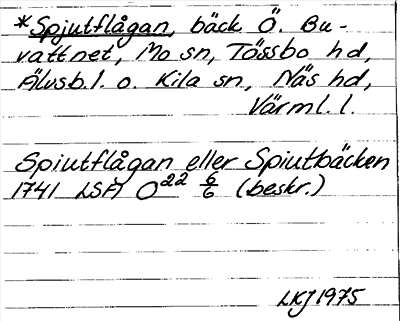 *Spjutflågan, bäck Ö. Bu-
vattnet, Mo sn, Tössbo hd,
Älvsb. l. o. Kila sn, Näs hd,
Värml. l.
Spiutflågan eller Spiutbäcken
1741 LSA O22 6/6 (beskr.)
LKJ 1975